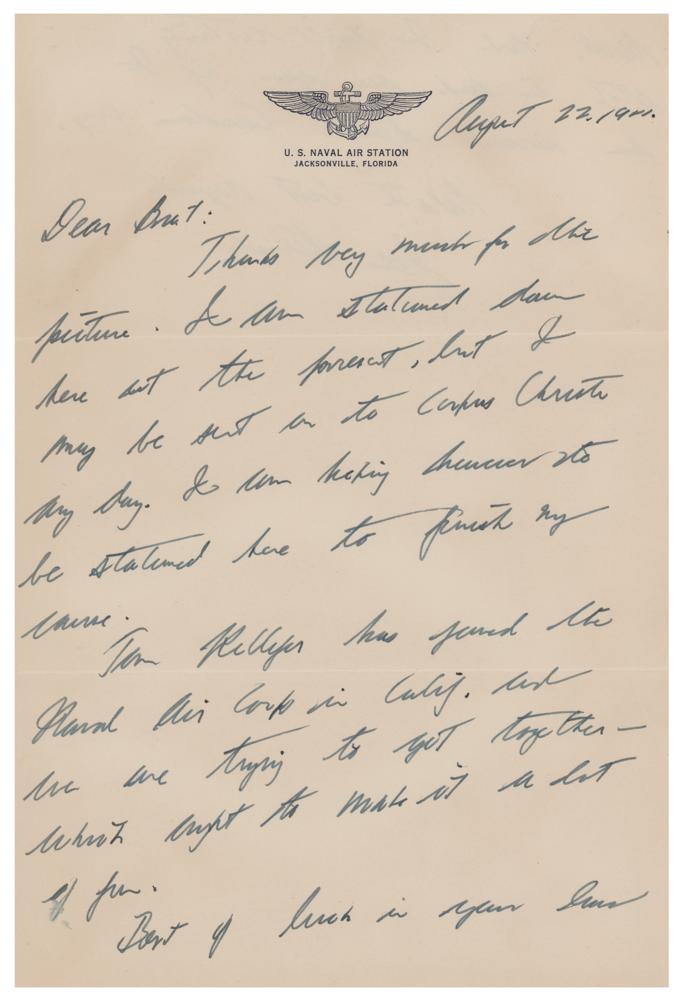 U. S. NAVAL AIR STATION
JACKSONVILLE, FLORIDA
August 22, 1941.
Dear Brut:
Thanks very much for the
picture. I am stationed down
here at the present, but I
may be sent on to Corpus Christi
any day. I am hoping however to
be stationed here to finish my
course.
Tom Kelleyer has joined the
Naval Air Corp in Calif. and
we are trying to get together—
which ought to make it a lot
of fun.
Best of luck in your